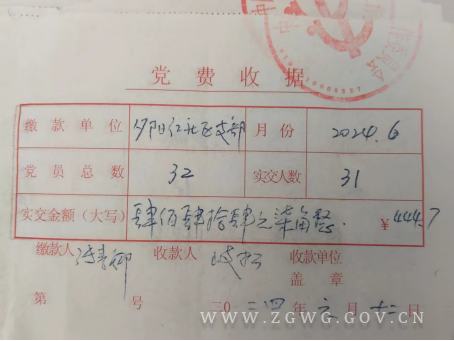 党费收据
缴款单位 夕阳红社区支部 月份 2024.6
党员总数 32 实交人数 31
实交金额（大写） 肆佰肆拾肆元柒角整. ¥444.7
缴款人 收款人 收款单位
盖章
第 号 二0二四年六月十二日
WWW.ZGWG.GOV.CN